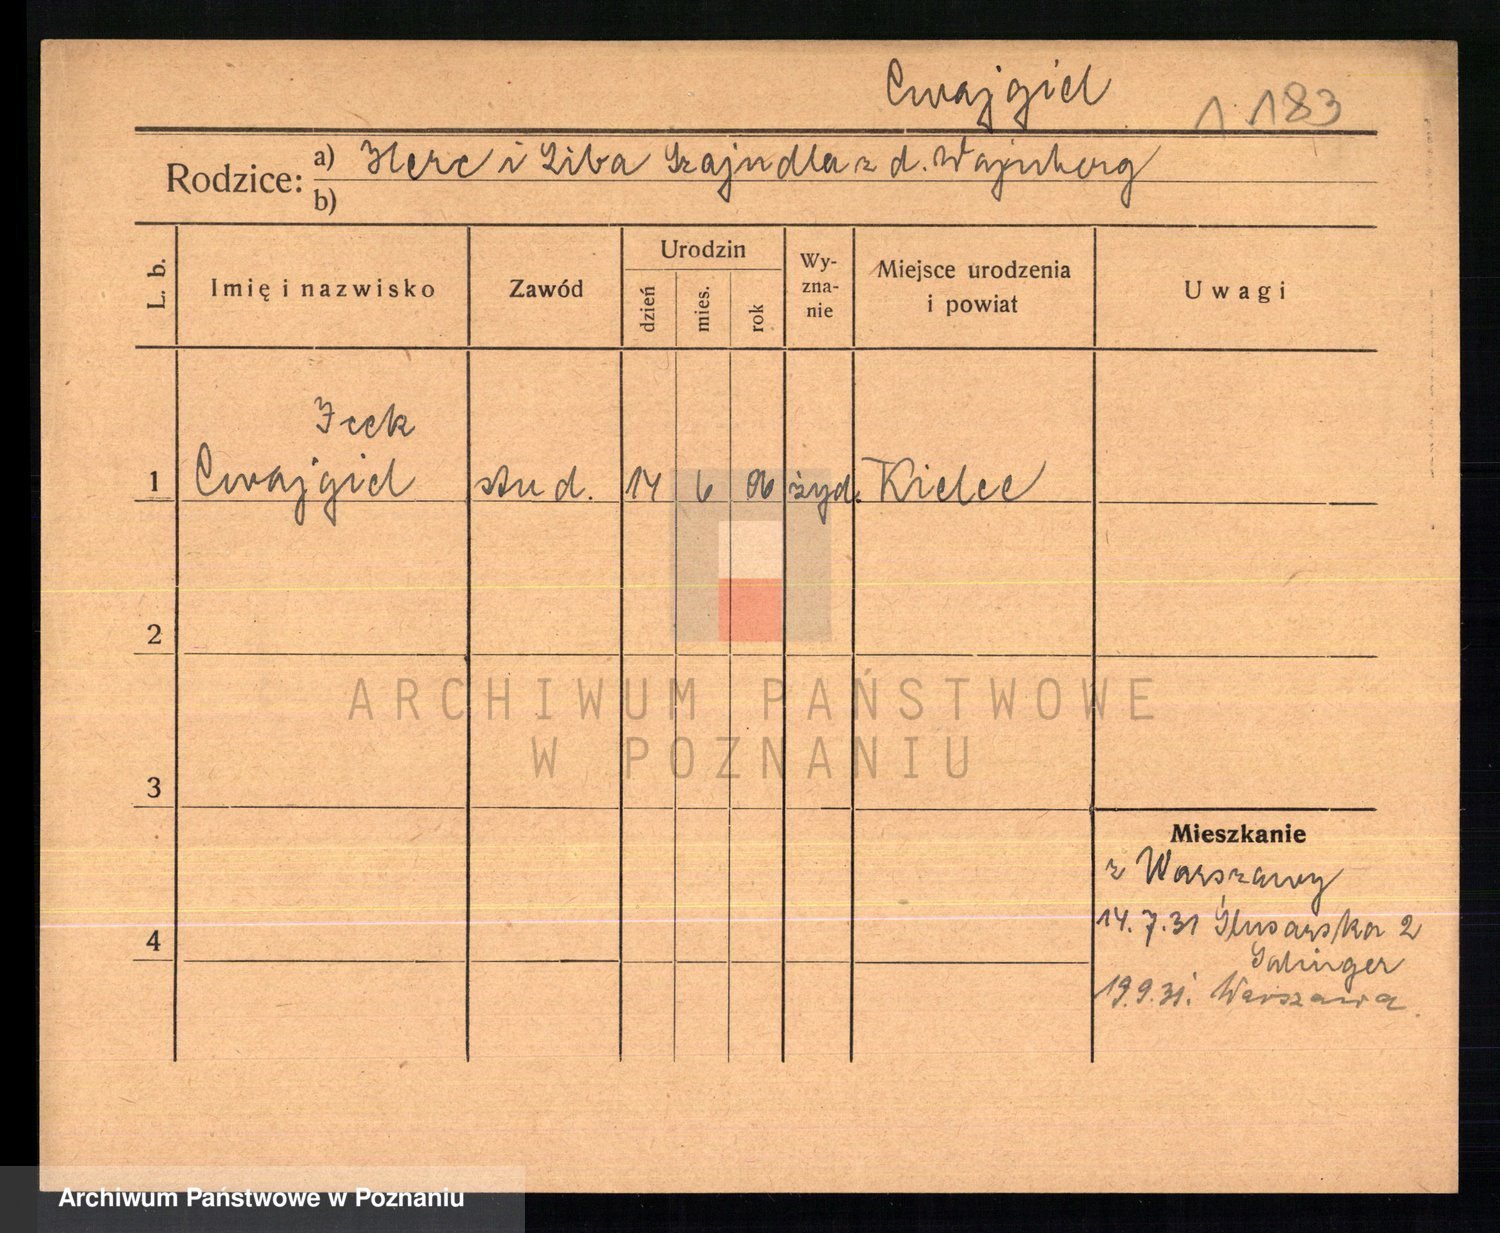 Cwajgiel 1183
Rodzice: a) Herc i Liba Szajndla z d. Wajnberg
b)
L. b. Imię i nazwisko Zawód Urodzin dzień mies. rok Wy-zna-nie Miejsce urodzenia i powiat Uwagi
Icek
1 Cwajgiel stud. 14 6 06 żyd. Kielce
2
ARCHIWUM PAŃSTWOWE
W POZNANIU
3
Mieszkanie
z Warszawy
14.7.31 Ślusarska 2
4
19.9.31. Warszawa.
Archiwum Państwowe w Poznaniu